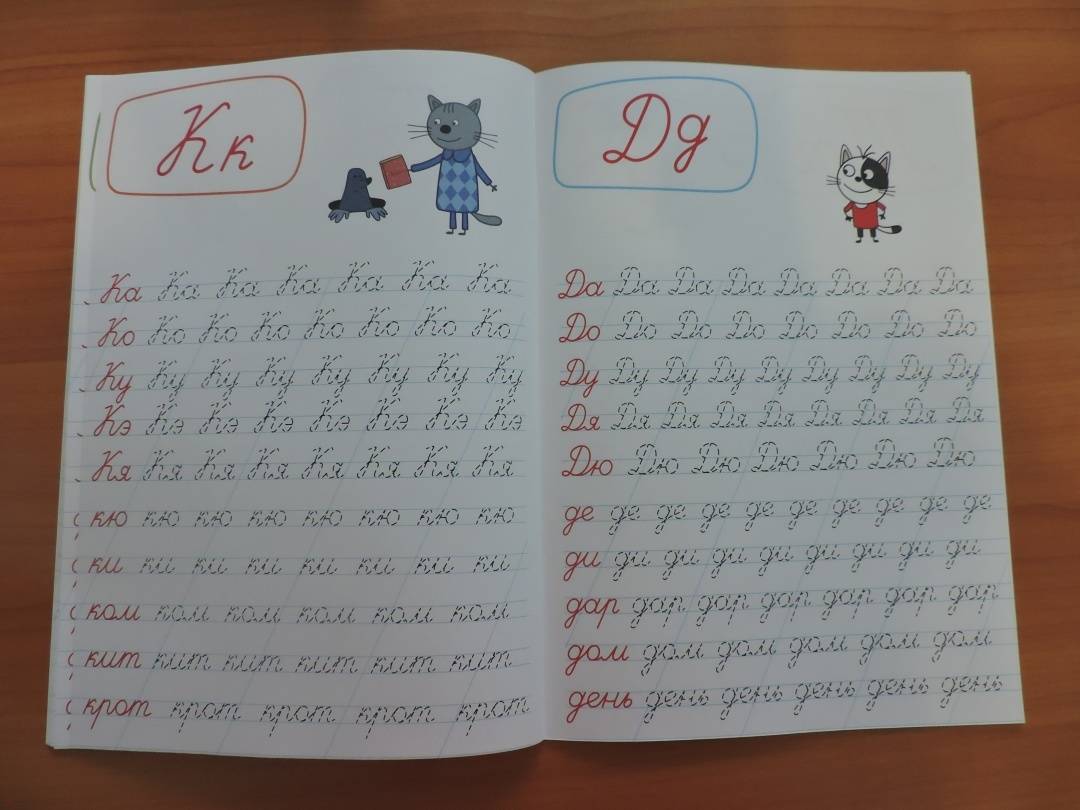 Кк
Ка Ка Ка Ка Ка Ка Ка
Ко Ко Ко Ко Ко Ко Ко Ко
Ку Ку Ку Ку Ку Ку Ку Ку
Кэ Кэ Кэ Кэ Кэ Кэ Кэ Кэ
Кя Кя Кя Кя Кя Кя Кя Кя
кю кю кю кю кю кю кю кю
ки ки ки ки ки ки ки ки
ком ком ком ком ком ком
кит кит кит кит кит кит
крот крот крот крот крот
Дд
Да Да Да Да Да Да Да Да
До До До До До До До До
Ду Ду Ду Ду Ду Ду Ду Ду Ду
Дя Дя Дя Дя Дя Дя Дя Дя Дя
Дю Дю Дю Дю Дю Дю Дю
де де де де де де де де де де
ди ди ди ди ди ди ди ди ди
дар дар дар дар дар дар дар
дом дом дом дом дом дом
день день день день день день